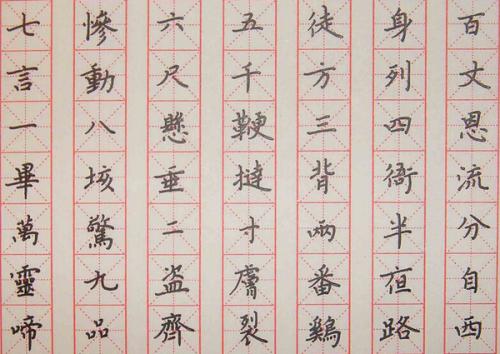 百丈恩流分自西
身列四衙半夜路
徒方三背兩番鷄
五千鞭撻寸膚裂
六尺懸垂二盜齊
慘動八垓驚九品
七言一畢萬靈啼